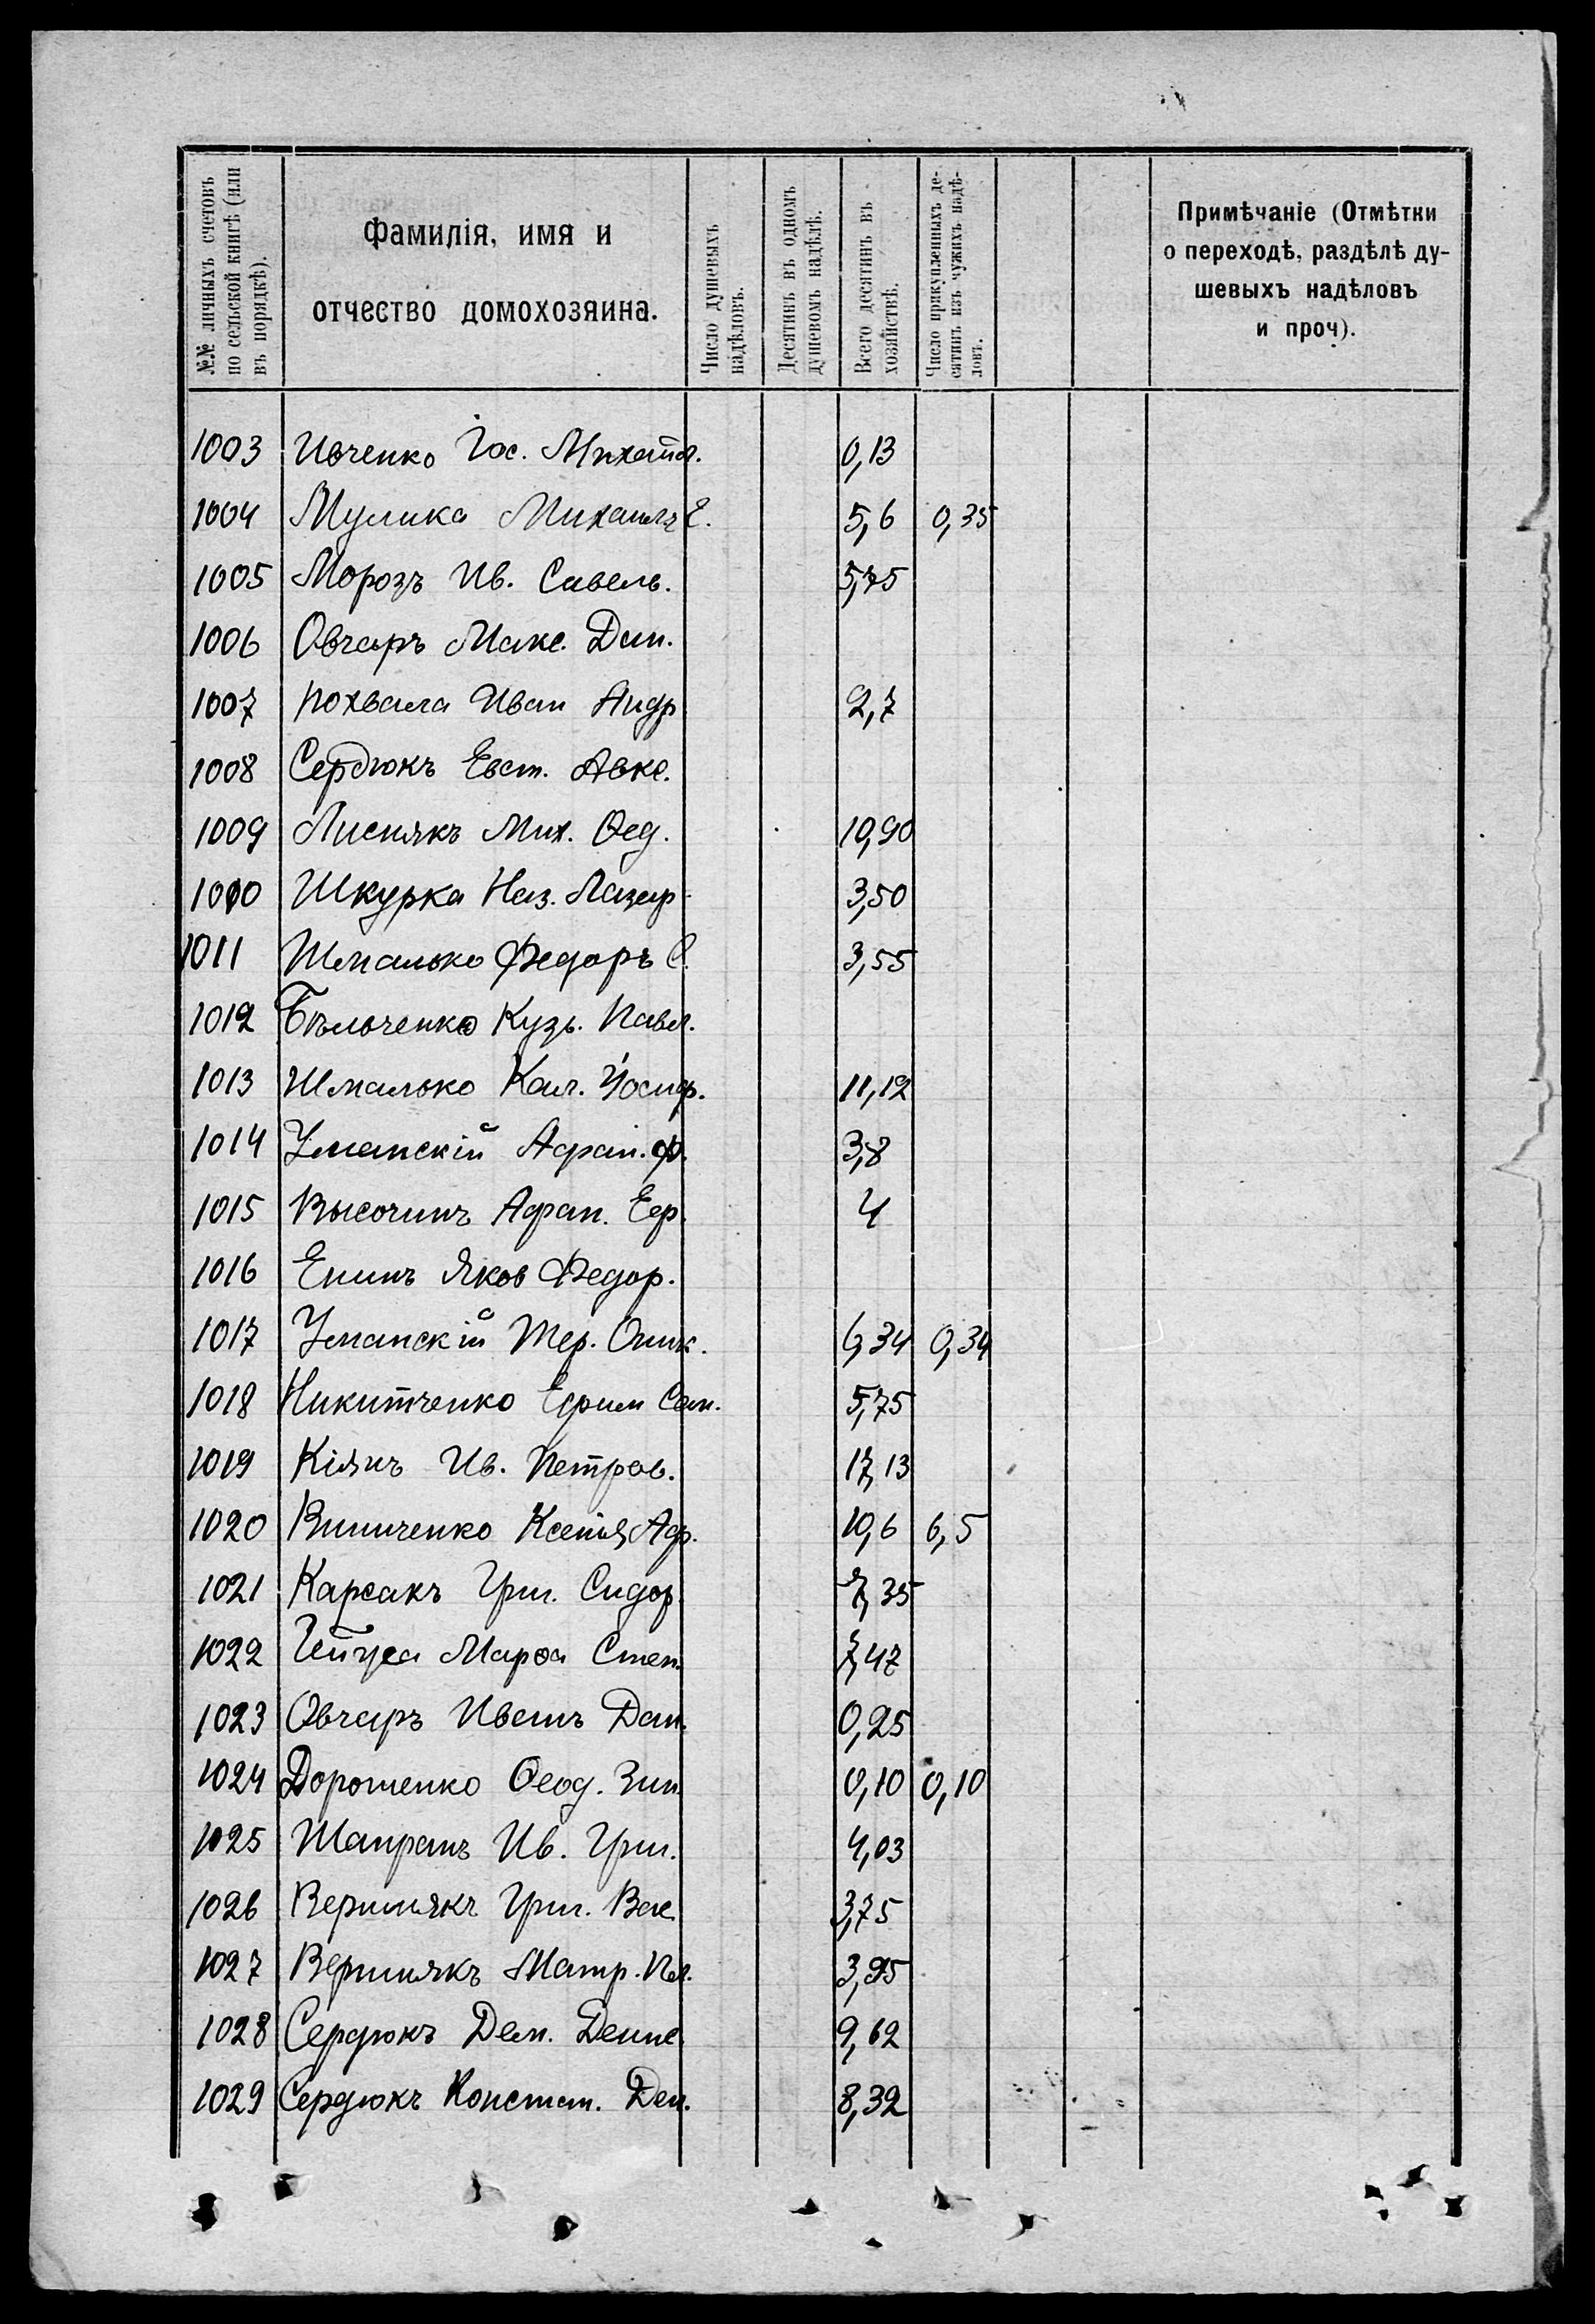 №№ личныхъ счетовъ по сельской книгѣ (или въ порядкѣ).
Фамилія, имя и
отчество домохозяина.
Число душевыхъ надѣловъ.
Десятинъ въ одномъ душевомъ надѣлѣ.
Всего десятинъ въ хозяйствѣ.
Число прикупленныхъ десятинъ изъ чужихъ надѣловъ.
Примѣчаніе (Отмѣтки
о переходѣ, раздѣлѣ ду-
шевыхъ надѣловъ
и проч).
1003 Ивченко Іос. Михайл. 0,13
1004 Мулика Михаилъ Е. 5,6 0,35
1005 Морозъ Ив. Савель. 5,75
1006 Овчаръ Макс. Дем.
1007 Похвала Иван Андр 2,7
1008 Сердюкъ Евст. Авкс.
1009 Лиснякъ Мих. Ѳед. 10,90
1010 Шкурка Наз. Лазар 3,50
1011 Шмалько Федоръ С. 3,55
1012 Бѣльченко Кузь. Павл.
1013 Шмалько Кал. Іосиф. 11,12
1014 Уманскій Афан. Ф. 3,8
1015 Высочинъ Афан. Еф. 4
1016 Енинъ Яков Федор.
1017 Уманскій Тер. Оник. 6,34 0,34
1018 Никитченко Ефим Сем. 5,75
1019 Кіянъ Ив. Петров. 17,13
1020 Винниченко Ксенія Аф. 10,6 6,5
1021 Карсакъ Григ. Сидор 7,35
1022 Марѳа Степ. 7,47
1023 Овчаръ Иванъ Дан. 0,25
1024 Дорошенко Ѳеод. Зин. 0,10 0,10
1025 Шапранъ Ив. Григ. 4,03
1026 Вершнякъ Григ. Вас. 3,75
1027 Вершнякъ Матр. Пл. 3,95
1028 Сердюкъ Дем. Денис 9,62
1029 Сердюкъ Констан. Дем. 8,32